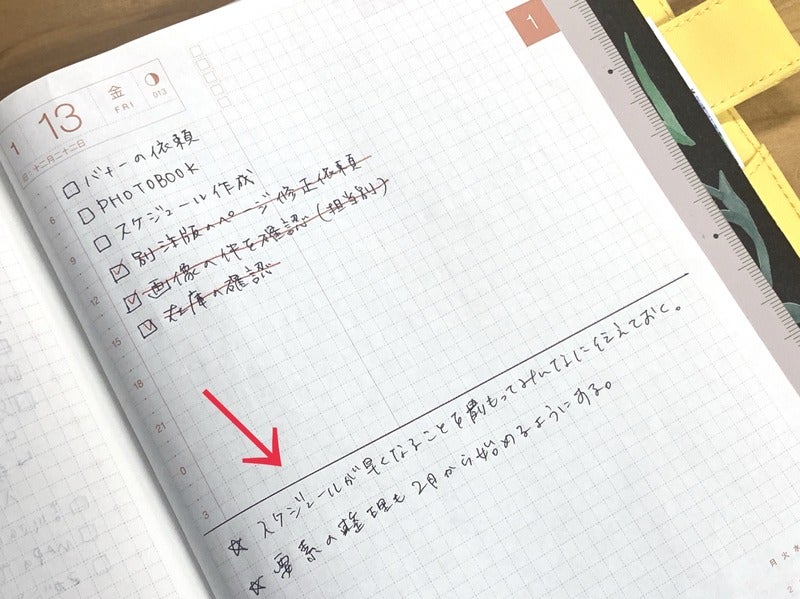 1
1
13
金
FRI
013
旧: 十二月二十二日
□ バナーの依頼
□ PHOTOBOOK
□ スケジュール作成
☑ 別注版のページ修正依頼
☑ 画像の件を確認（担当別）
☑ 在庫の確認
6
9
12
15
18
21
0
3
☆ スケジュールが早くなることを前もってみんなに伝えておく。
☆ 要素の整理も2月から始めるようにする。
月 火 水
2